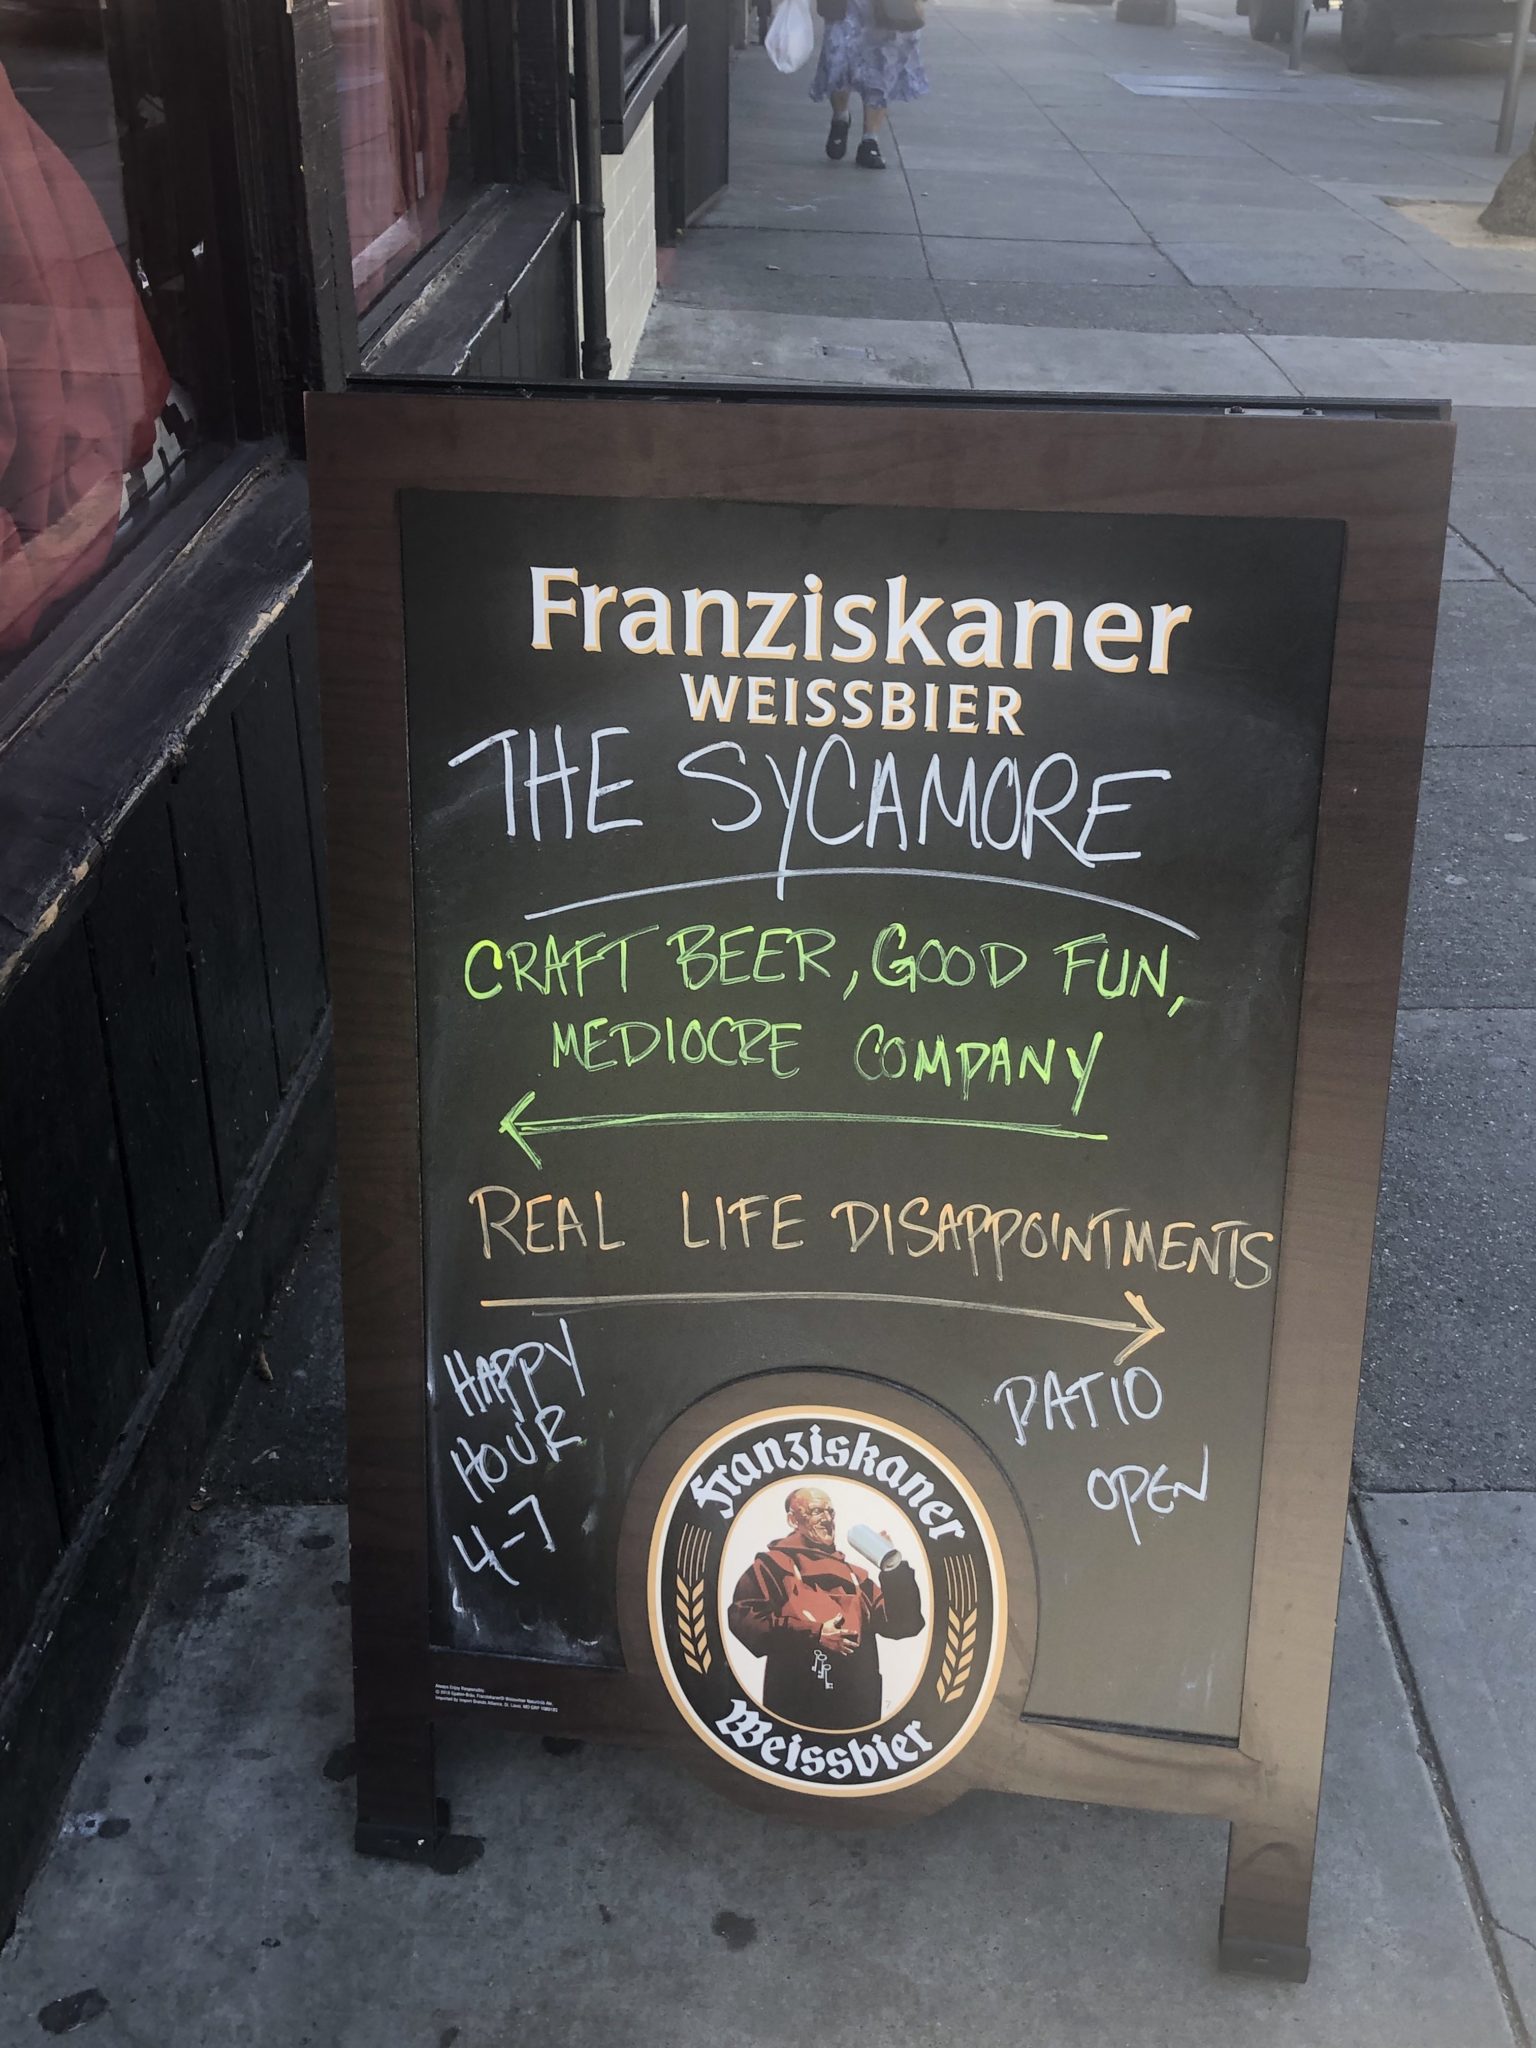 Franziskaner
WEISSBIER
THE SYCAMORE
CRAFT BEER, GOOD FUN,
MEDIOCRE COMPANY
REAL LIFE DISAPPOINTMENTS
HAPPY
HOUR
4-7
PATIO
OPEN
Franziskaner
Weissbier
Always Enjoy Responsibly.